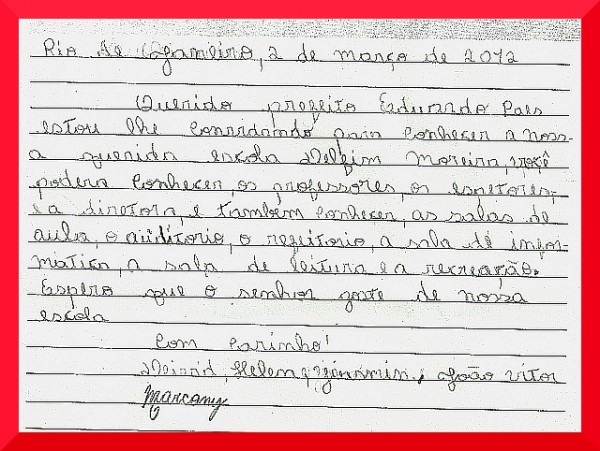 Rio de Janeiro, 2 de março de 2012
Querido prefeito Eduardo Paes
estou lhe convidando para conhecer a noss-
a querida escola Delfim Moreira, você
podera conhecer, os professores, os escritores,
e a diretora, e também conhecer, as salas de
aula, o auditorio, o refeitorio, a sala de infor-
matica, a sala de leitura e a recreação.
Espero que o senhor goste de nossa
escola
Com Carinho!
Helem, João Vitor
Marcany